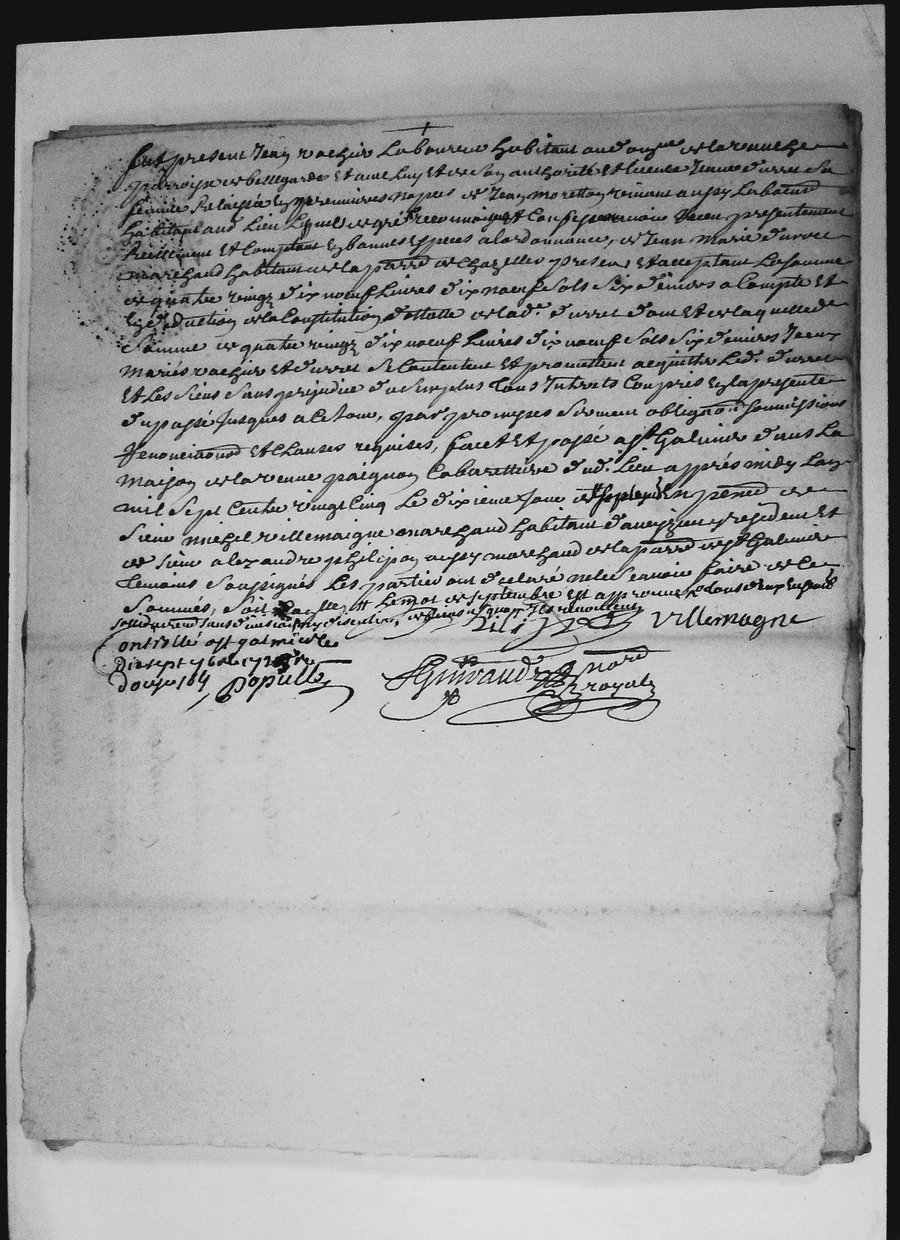 fut present Jean vachier Laboureur habitant au de la
parroisse de bellegarde Et avec luy Et de son authorité Et licence Jeanne durret sa
femme Relaissée En premieres nopces de Jean moretton vivant aussy Laboureur
habitant aud Lieu Lequel de gré Reconnoissent Et Confessent avoir Receu presentement
Reellement Et Comptant En bonnes Especes a Lordonnance, de Jean Marie durret
marchand habitant de la parrse de Chazelles present Et acceptant La somme
de quatre vingt dix noeuf Livres dix noeuf Sols Six deniers a Compte Et
En deduction de la Constitution dottalle de lad. durret dont Et de laquelle de
Somme de quatre vingt dix noeuf Livres dix noeuf Sols Six deniers Iceux
Mariés vachier Et durret Se Contentent Et promettent acquitter Led. durret
Et Les Siens Sans prejudice du Surplus Tous Interets Compris En la presente
du passé Jusques a ce Jour, par promesses Serment obligaons Soumissions
Renonciaons Et Clauses requises, faict Et passé a st Galmier dans La
Maison de la veuve paignon Cabarettiere dud. Lieu apprés midy Lan
mil Sept Cents vingt Cinq Le dixieme Jour de septembre En presence de
Sieur michel villemaigne marchand habitant d'anvezieu y residant Et
de Sieur alexandre philipon aussy marchand de la parrse de st Galmier
temoins Soussignés Les parties ont declaré ne le Scavoir faire de ce
Sommés, Soit Le mot de septembre Est approuvé
solidairement sans division ny discution, de biens a quoy Ils renoncent
villemagne
Controllé a st galmier le
dix sept 7bre 1725
douze sols Populle
Guiraud nore
royal